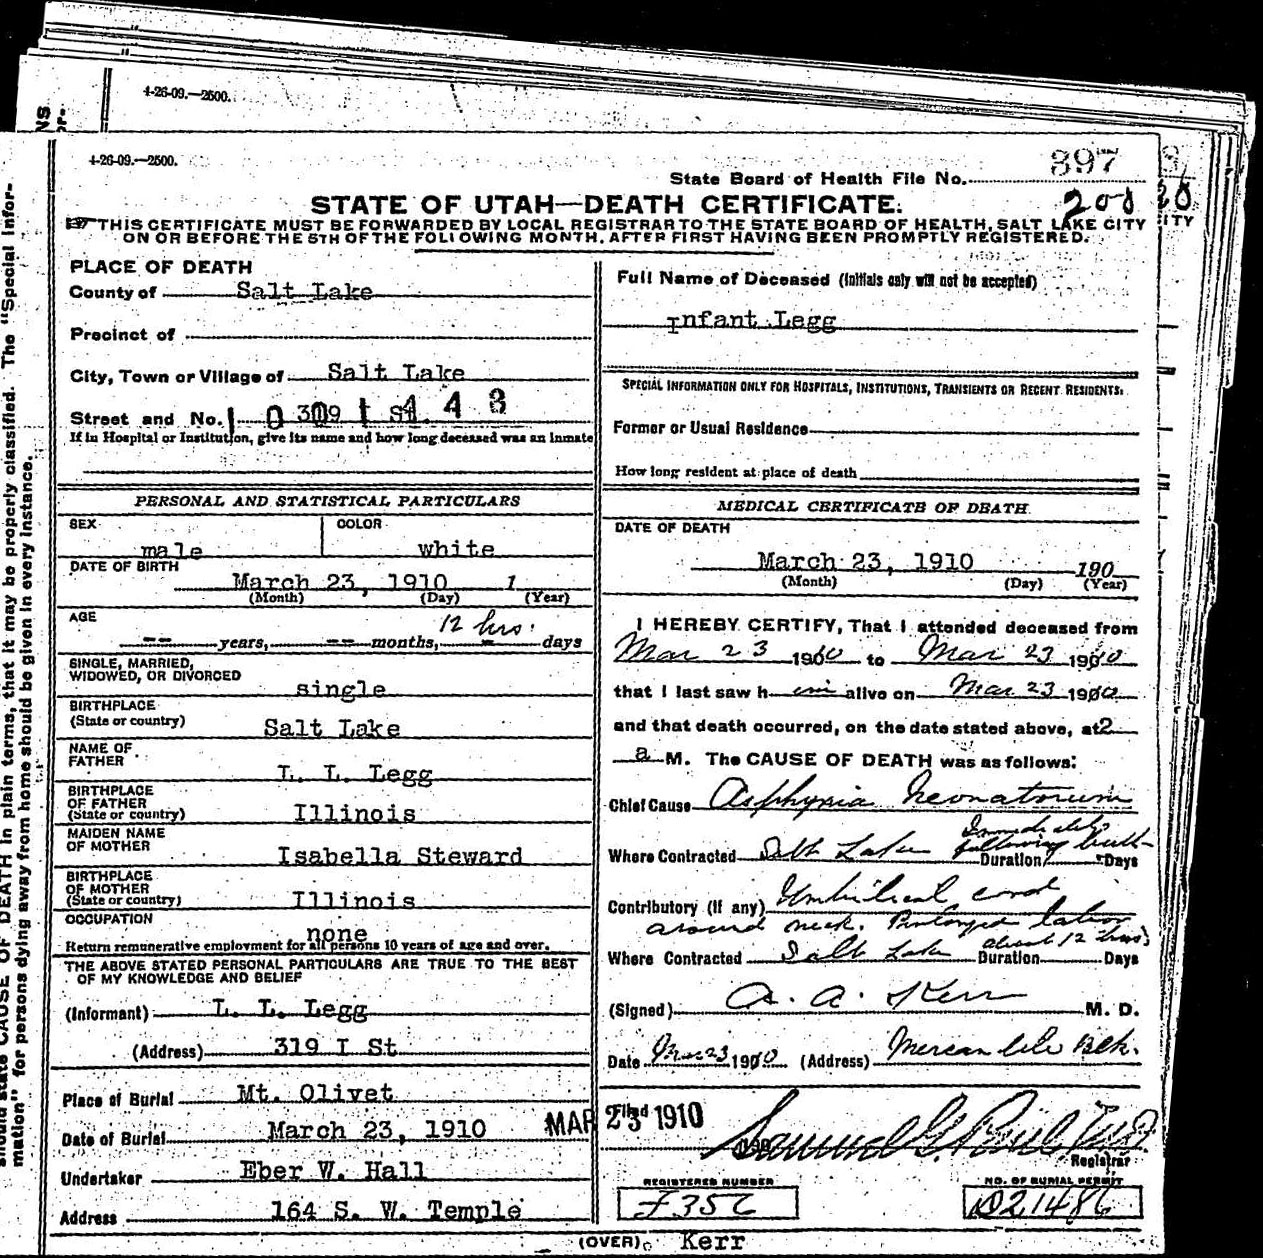 4-26-09.—2500.
4-26-09.—2500.
State Board of Health File No. 397
STATE OF UTAH—DEATH CERTIFICATE.
THIS CERTIFICATE MUST BE FORWARDED BY LOCAL REGISTRAR TO THE STATE BOARD OF HEALTH, SALT LAKE CITY
ON OR BEFORE THE 5TH OF THE FOLLOWING MONTH, AFTER FIRST HAVING BEEN PROMPTLY REGISTERED.
PLACE OF DEATH
County of Salt Lake
Precinct of
City, Town or Village of Salt Lake
Street and No. 319 I St. 4 4 3
If in Hospital or Institution, give its name and how long deceased was an inmate
Full Name of Deceased (Initials only will not be accepted)
Infant Legg
SPECIAL INFORMATION ONLY FOR HOSPITALS, INSTITUTIONS, TRANSIENTS OR RECENT RESIDENTS:
Former or Usual Residence
How long resident at place of death
PERSONAL AND STATISTICAL PARTICULARS
SEX male COLOR white
DATE OF BIRTH
March 23, 1910 1
(Month) (Day) (Year)
AGE 12 hrs.
-- years, -- months, - days
SINGLE, MARRIED,
WIDOWED, OR DIVORCED single
BIRTHPLACE
(State or country) Salt Lake
NAME OF
FATHER L. L. Legg
BIRTHPLACE
OF FATHER
(State or country) Illinois
MAIDEN NAME
OF MOTHER Isabella Steward
BIRTHPLACE
OF MOTHER
(State or country) Illinois
OCCUPATION none
Return remunerative employment for all persons 10 years of age and over.
THE ABOVE STATED PERSONAL PARTICULARS ARE TRUE TO THE BEST
OF MY KNOWLEDGE AND BELIEF
(Informant) L. L. Legg
(Address) 319 I St
Place of Burial Mt. Olivet
Date of Burial March 23, 1910
Undertaker Eber W. Hall
Address 164 S. W. Temple
MEDICAL CERTIFICATE OF DEATH
DATE OF DEATH
March 23, 1910 190
(Month) (Day) (Year)
I HEREBY CERTIFY, That I attended deceased from
Mar 23 1910 to Mar 23 1910
that I last saw him alive on Mar 23 1910
and that death occurred, on the date stated above, at 2
a M. The CAUSE OF DEATH was as follows:
Chief Cause Asphyxia Neonatorum
Immediately
Where Contracted Salt Lake following birth
Duration Days
Contributory (if any) Umbilical cord
around neck. Prolonged labor
about 12 hours
Where Contracted Salt Lake Duration Days
(Signed) A. A. Kerr M. D.
Date Mar 23 1910 (Address) Mercantile Blk.
Filed MAR 23 1910
Registrar
REGISTERED NUMBER
NO. OF BURIAL PERMIT
(OVER) Kerr
DEATH in plain terms, that it may be properly classified. The "Special Infor-
mation" for persons dying away from home should be given in every instance.